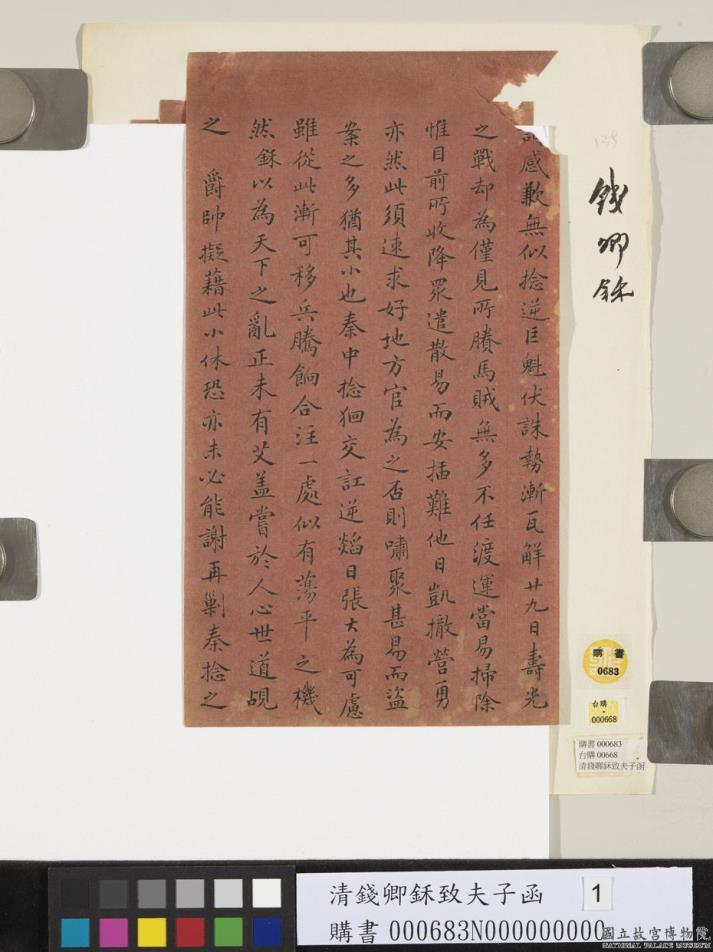 感歉無似捻逆巨魁伏誅勢漸瓦解廿九日壽光
之戰却為僅見所賸馬賊無多不任渡運當易掃除
惟目前所收降眾遣散易而安插難他日凱撤營勇
亦然此須速求好地方官為之否則嘯聚甚易而盜
案之多猶其小也秦中捻狪交訌逆燄日張大為可慮
雖從此漸可移兵騰餉合注一處似有蕩平之機
然鉌以為天下之亂正未有艾蓋嘗於人心世道覘
之 爵帥擬藉此小休恐亦未必能謝再剿秦捻之
錢卿鉌
139
購書
0683
台購
000668
購書 000683
台購 00668
清錢卿鉌致夫子函
清錢卿鉌致夫子函
1
購書 000683N000000000
國立故宮博物院
NATIONAL PALACE MUSEUM